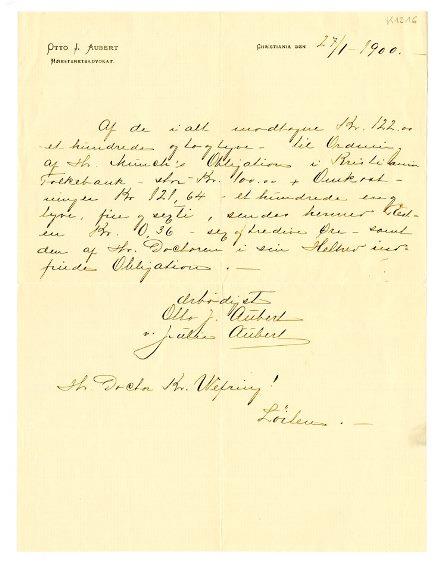 K1216
OTTO J. AUBERT
HØIESTERETSADVOKAT.
CHRISTIANIA DEN 27/1 - 1900. -
Af de i alt modtagne Kr. 122.00
et hundrede og to og tyve - til Ordning
af Hr. Munch's Obligation i Kristiania
Folkebank - stor Kr. 100.00 + Omkost-
ninger Kr 121,64 - et hundrede en og
tyve, fire og sexti, sendes herved Rest-
en Kr. 0,36 - sex og tredive Øre - samt
den af Hr. Doctoren i sin Helhed ind-
friede Obligation. -
Ærbødigst
Otto J. Aubert
v. Julie Aubert
Hr. Doctor Kr. Wefring!
Löiten. -